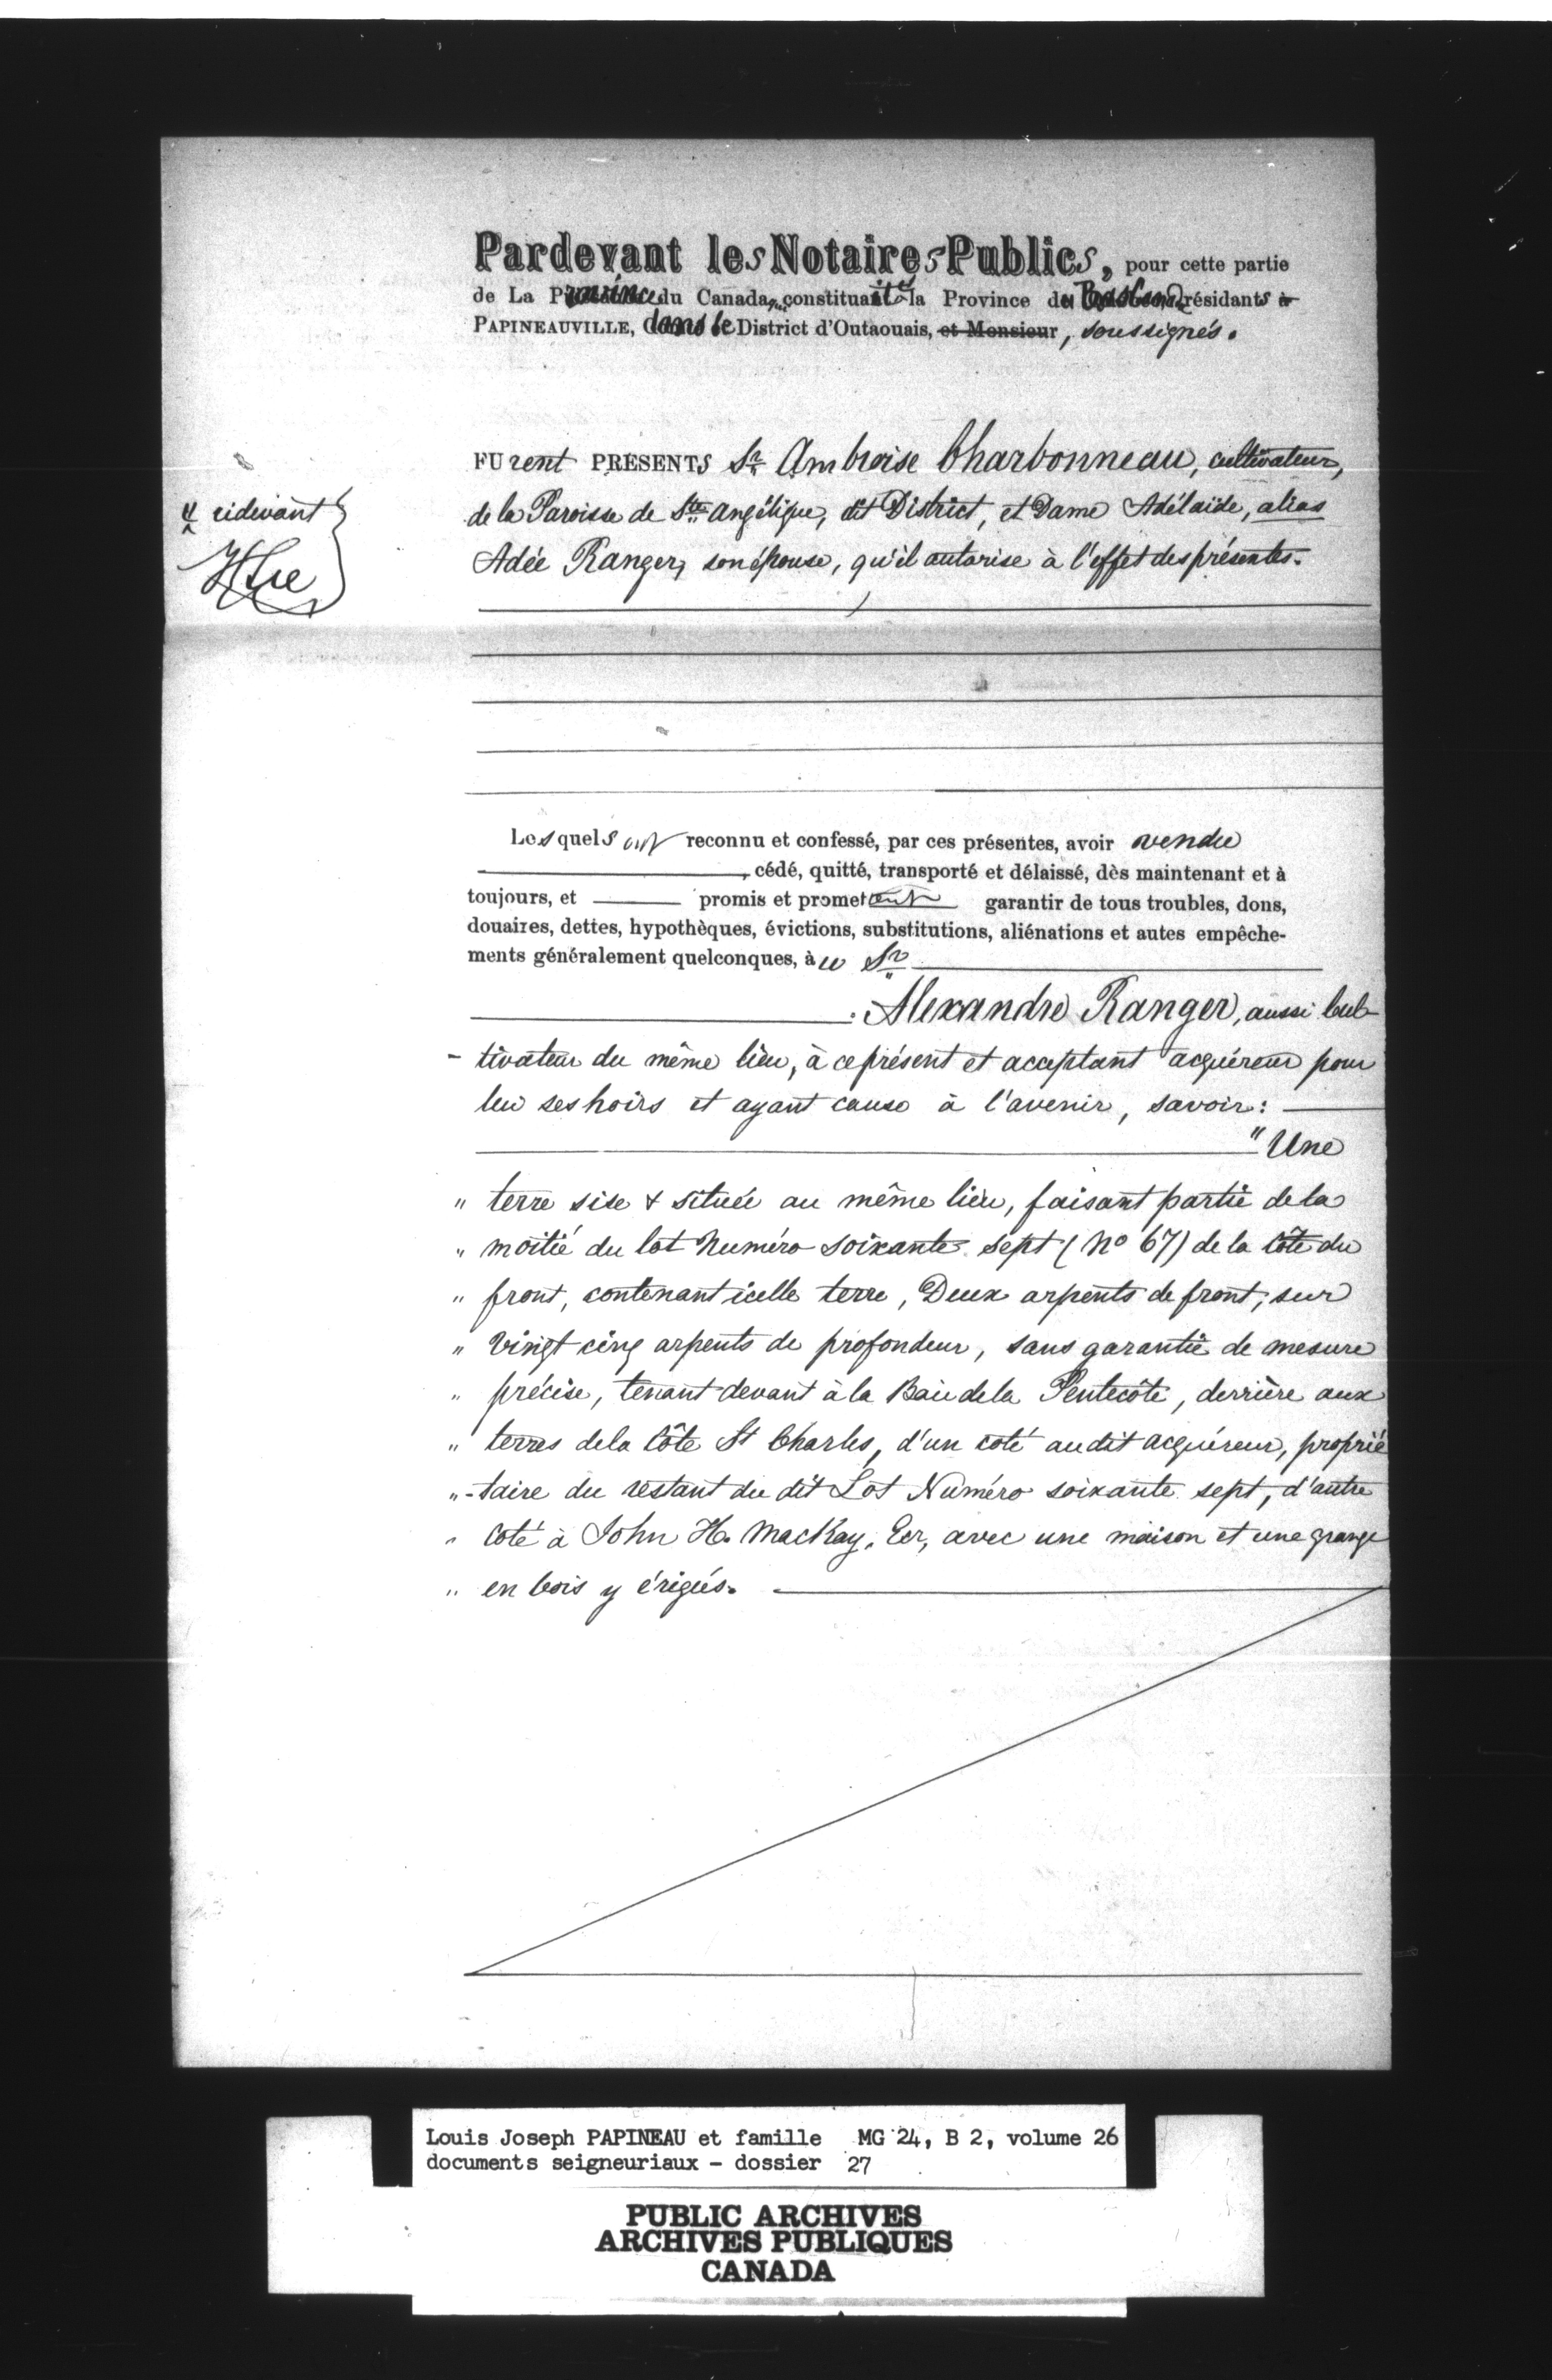 Pardevant les Notaires Publics, pour cette partie
de La Province du Canada, constituant la Province du Bas Canada résidants à
PAPINEAUVILLE, dans le District d'Outaouais, et Monsieur, soussignés.
FUrent PRÉSENTS Sr Ambroise Charbonneau, cultivateur,
de la Paroisse de Ste Angélique, dit District, et Dame Adélaïde, alias
Adée Ranger, son épouse, qu'il autorise à l'effet des présentes.
x cidevant
Lesquels ont reconnu et confessé, par ces présentes, avoir vendu
, cédé, quitté, transporté et délaissé, dès maintenant et à
toujours, et promis et promettent garantir de tous troubles, dons,
douaires, dettes, hypothèques, évictions, substitutions, aliénations et autes empêche-
ments généralement quelconques, à ce Sr
Alexandre Ranger, aussi Cul-
- tivateur du même lieu, à ce présent et acceptant acquéreur pour
lui ses hoirs et ayant cause à l'avenir, savoir :
" Une
" terre sise & située au même lieu, faisant partie de la
" moitié du lot Numéro soixante sept (No 67) de la Côte du
" front, contenant icelle terre, Deux arpents de front, sur
" Vingt cinq arpents de profondeur, sans garantie de mesure
" précise, tenant devant à la Baie de la Pentecôte, derrière aux
" terres de la Côte St Charles, d'un coté audit acquéreur, proprié
" -taire du restant du dit Lot Numéro soixante sept, d'autre
" Coté à John H. MacKay, Ecr, avec une maison et une grange
" en bois y érigés.
Louis Joseph PAPINEAU et famille MG 24, B 2, volume 26
documents seigneuriaux - dossier 27
PUBLIC ARCHIVES
ARCHIVES PUBLIQUES
CANADA